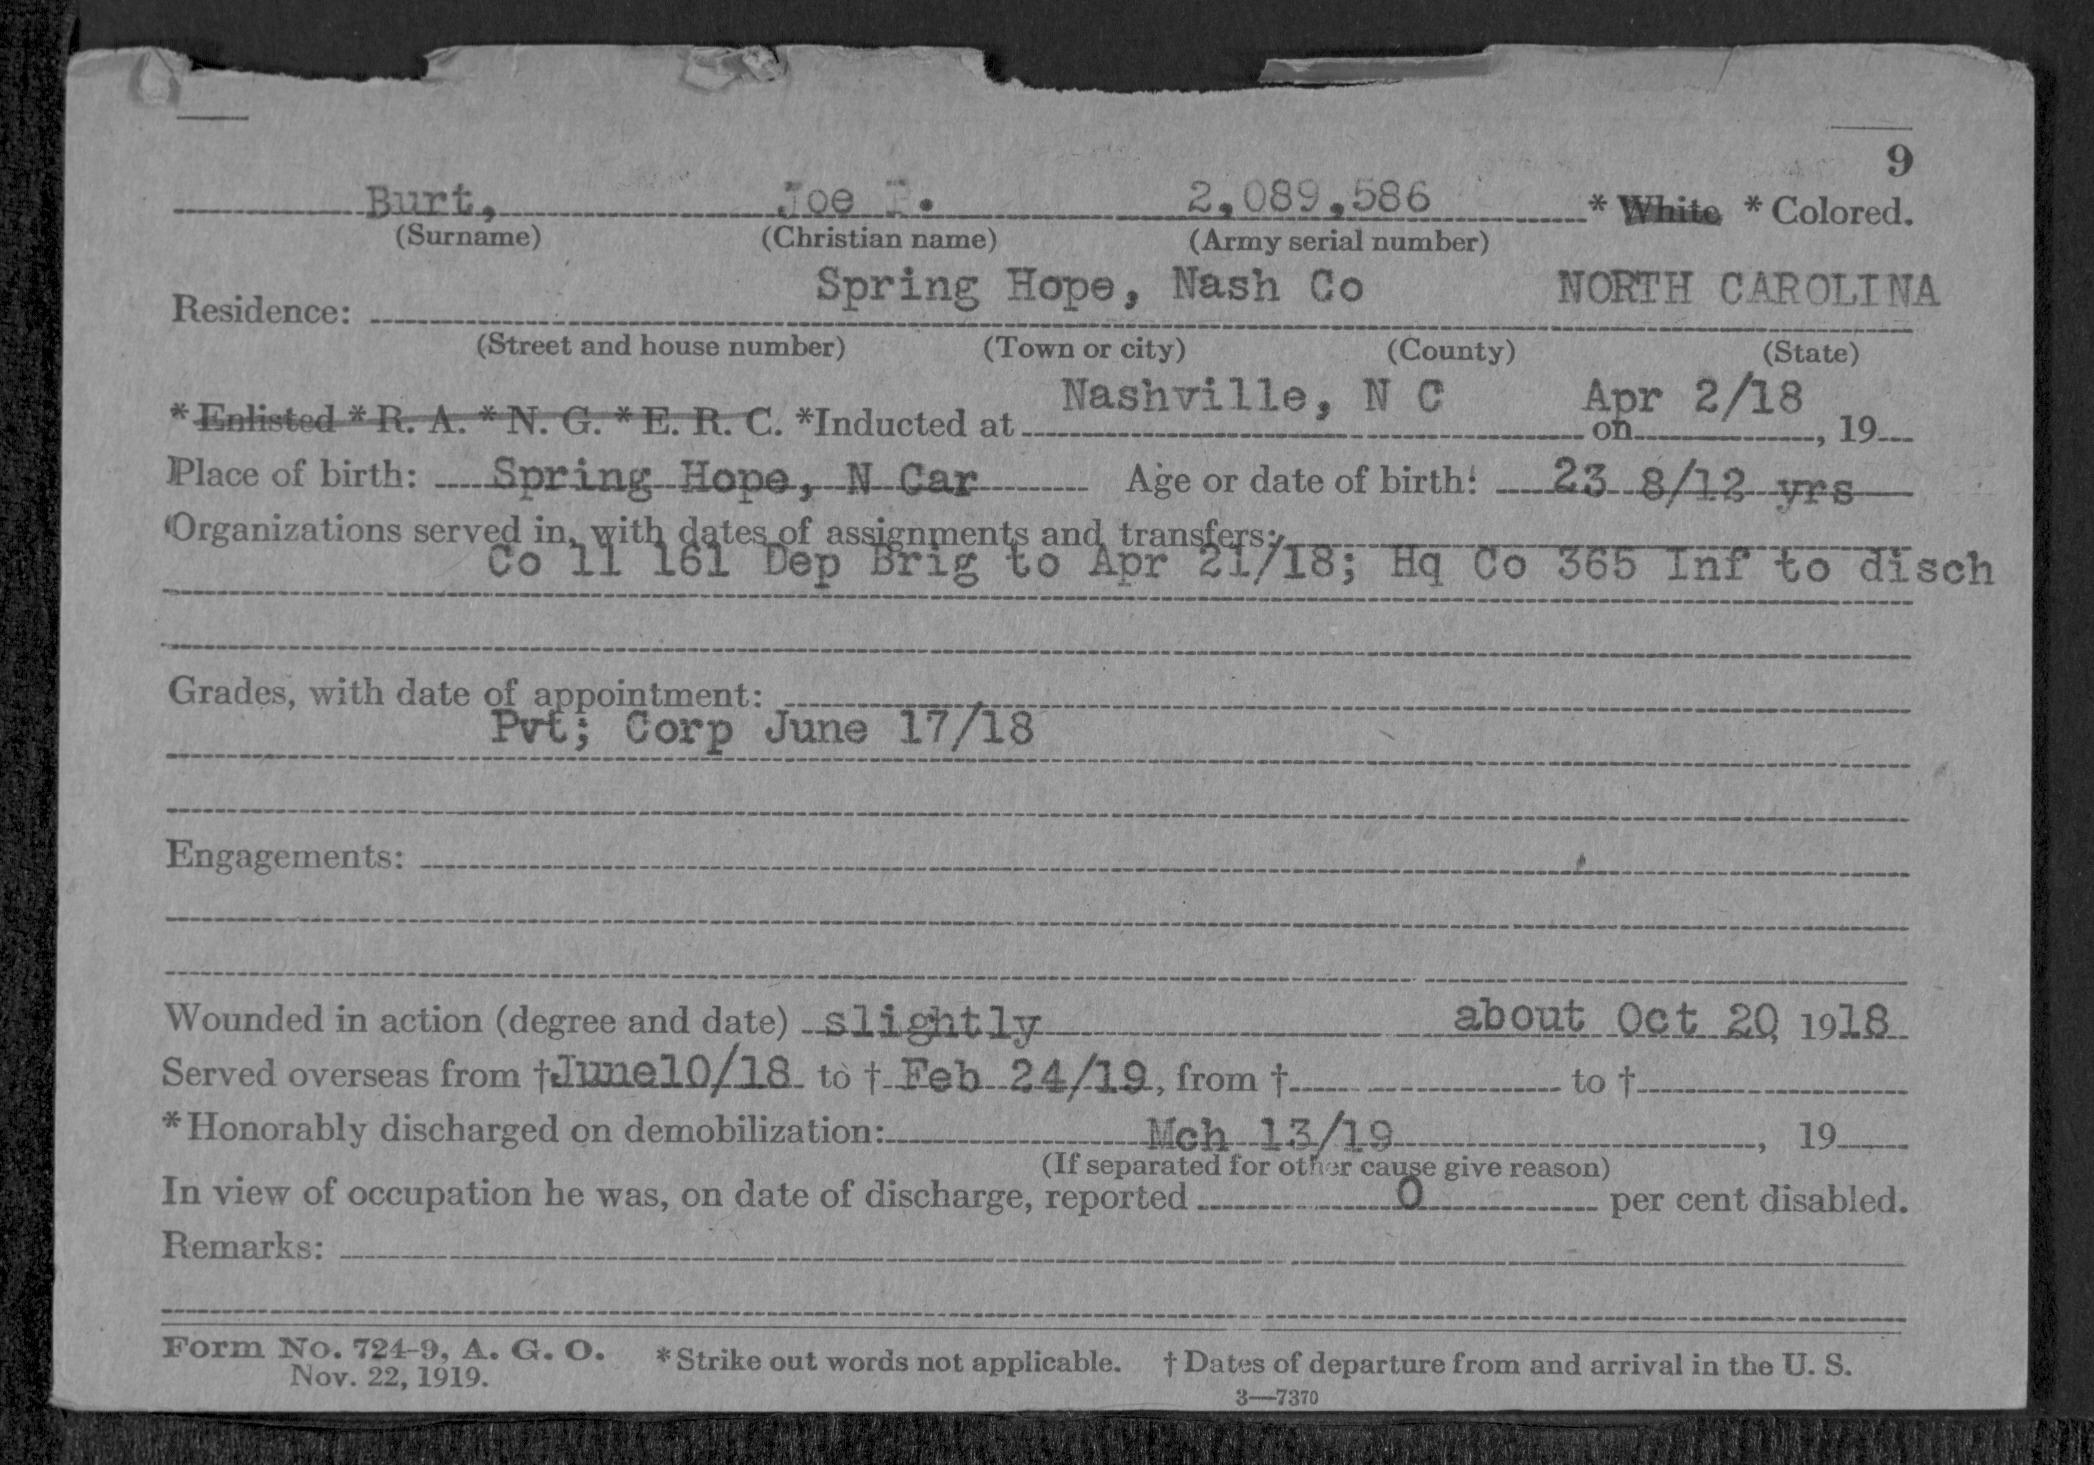 9
Burt, Joe . 2,089,586 * White * Colored.
(Surname) (Christian name) (Army serial number)
Spring Hope, Nash Co NORTH CAROLINA
Residence:
(Street and house number) (Town or city) (County) (State)
Nashville, N C Apr 2/18
* Enlisted * R. A. * N. G. * E. R. C. *Inducted at on , 19
Place of birth: Spring Hope, N Car Age or date of birth: 23 8/12 yrs
Organizations served in, with dates of assignments and transfers:
Co 11 161 Dep Brig to Apr 21/18; Hq Co 365 Inf to disch
Grades, with date of appointment:
Pvt; Corp June 17/18
Engagements:
Wounded in action (degree and date) slightly about Oct 20, 1918
Served overseas from † June10/18 to † Feb 24/19, from † to †
* Honorably discharged on demobilization: Mch 13/19 , 19
(If separated for other cause give reason)
In view of occupation he was, on date of discharge, reported 0 per cent disabled.
Remarks:
Form No. 724-9, A. G. O. * Strike out words not applicable. † Dates of departure from and arrival in the U. S.
Nov. 22, 1919.
3—7370